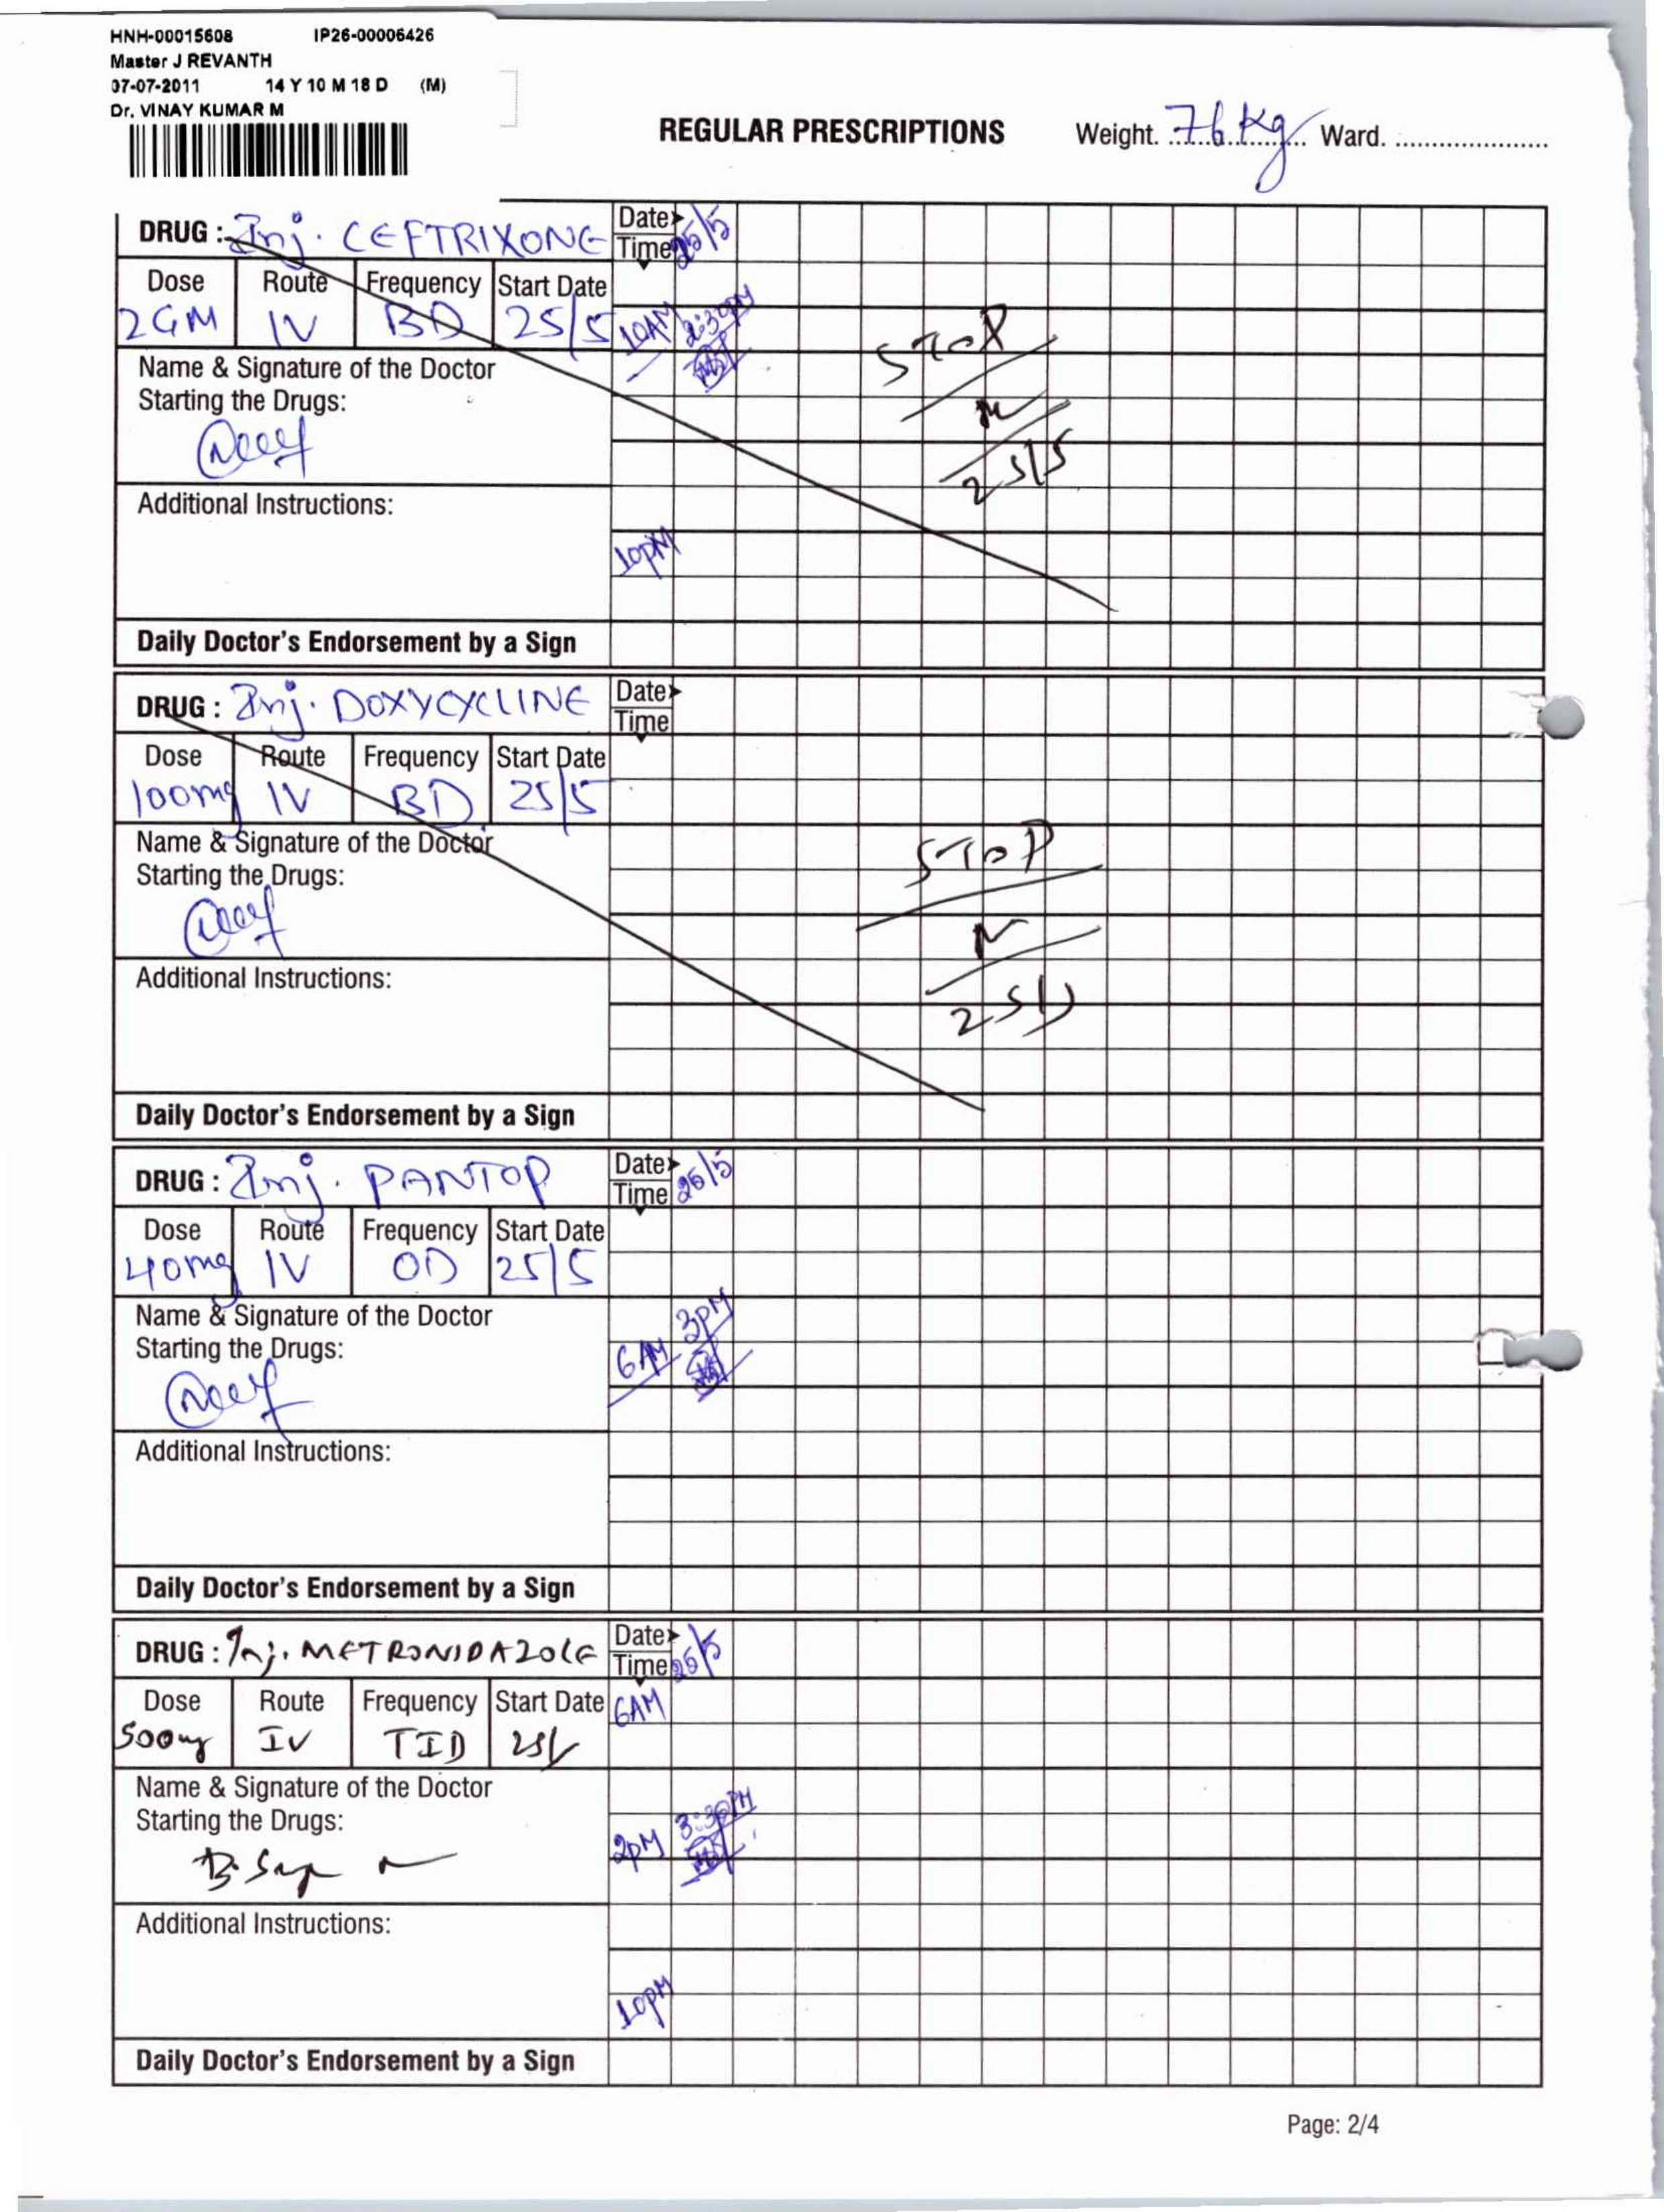 HNH-00015608 IP26-00006426
Master J REVANTH
07-07-2011 14 Y 10 M 18 D (M)
Dr. VINAY KUMAR M
REGULAR PRESCRIPTIONS Weight. 76 Kg Ward. ......................
DRUG : Inj. CEFTRIXONE Date Time 25/5
Dose Route Frequency Start Date
2GM IV BD 25/5 10AM 2:30PM
STOP
25/5
Name & Signature of the Doctor
Starting the Drugs:
Additional Instructions:
10PM
Daily Doctor's Endorsement by a Sign
DRUG : Inj. DOXYCYCLINE Date Time
Dose Route Frequency Start Date
100mg IV BD 25/5
STOP
25/5
Name & Signature of the Doctor
Starting the Drugs:
Additional Instructions:
Daily Doctor's Endorsement by a Sign
DRUG : Inj. PANTOP Date Time 25/5
Dose Route Frequency Start Date
40mg IV OD 25/5
Name & Signature of the Doctor
Starting the Drugs:
6AM 3PM
Additional Instructions:
Daily Doctor's Endorsement by a Sign
DRUG : Inj. METRONIDAZOLE Date Time 25/5
Dose Route Frequency Start Date 6AM
500mg IV TID 25/
Name & Signature of the Doctor
Starting the Drugs:
2PM 3:30PM
Additional Instructions:
10PM
Daily Doctor's Endorsement by a Sign
Page: 2/4